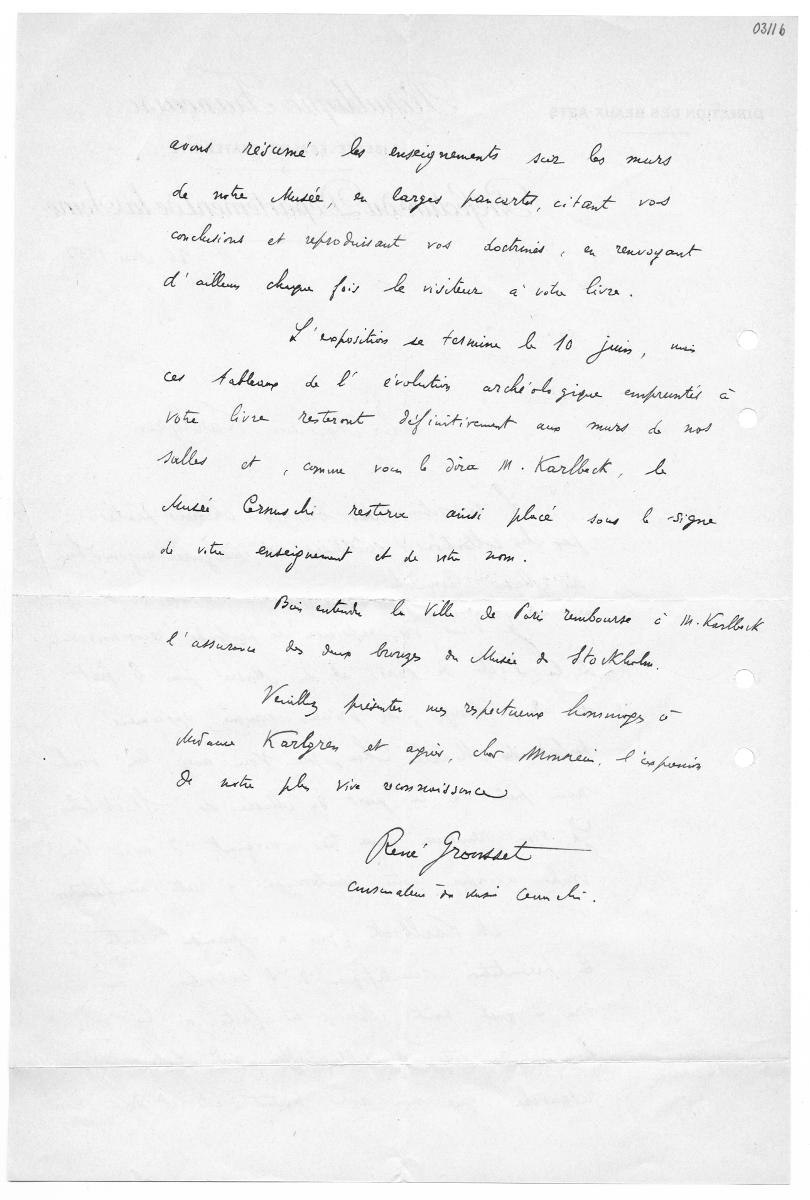 03116
avons résumé les enseignements sur les murs
de notre Musée, en larges pancartes, citant vos
conclusions et reproduisant vos doctrines, en renvoyant
d'ailleurs chaque fois le visiteur à votre livre.
L'exposition se termine le 10 juin, mais
ces tableaux de l'évolution archéologique empruntés à
votre livre resteront définitivement aux murs de nos
salles et, comme vous le dira M. Karlbeck, le
Musée Cernuschi restera ainsi placé sous le signe
de votre enseignement et de votre nom.
Bien entendu la Ville de Paris rembourse à M. Karlbeck
l'assurance des deux bronzes du Musée de Stockholm.
Veuillez présenter mes respectueux hommages à
Madame Karlgren et agréer, cher Monsieur, l'expression
de notre plus vive reconnaissance
René Grousset
conservateur du musée Cernuschi.